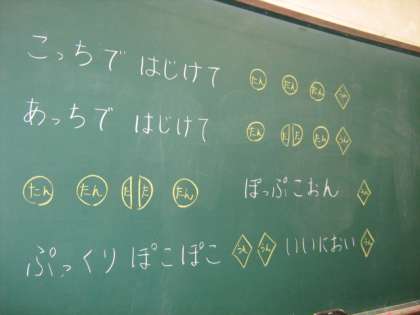 こっちで はじけて たん たん たん うん
あっちで はじけて たん たた たん うん
たん たん たた たん ぽっぷこおん うん
ぷっくり ぽこぽこ うん うん いいにおい うん